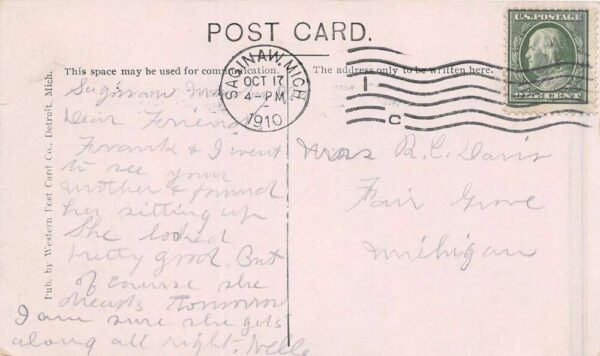 POST CARD.
This space may be used for communication.
The address only to be written here.
SAGINAW, MICH.
OCT 17
4-PM
1910
1
C
U.S. POSTAGE
ONE CENT
Pub. by Western Post Card Co., Detroit, Mich.
Saginaw
Dear Friend
Frank & I went
to see your
mother & found
her sitting up
She looked
pretty good. But
of course she
dreads tomorrow
I am sure she gets
along all right. Nelle
Mrs R. C. Davis
Fair Grove
Michigan